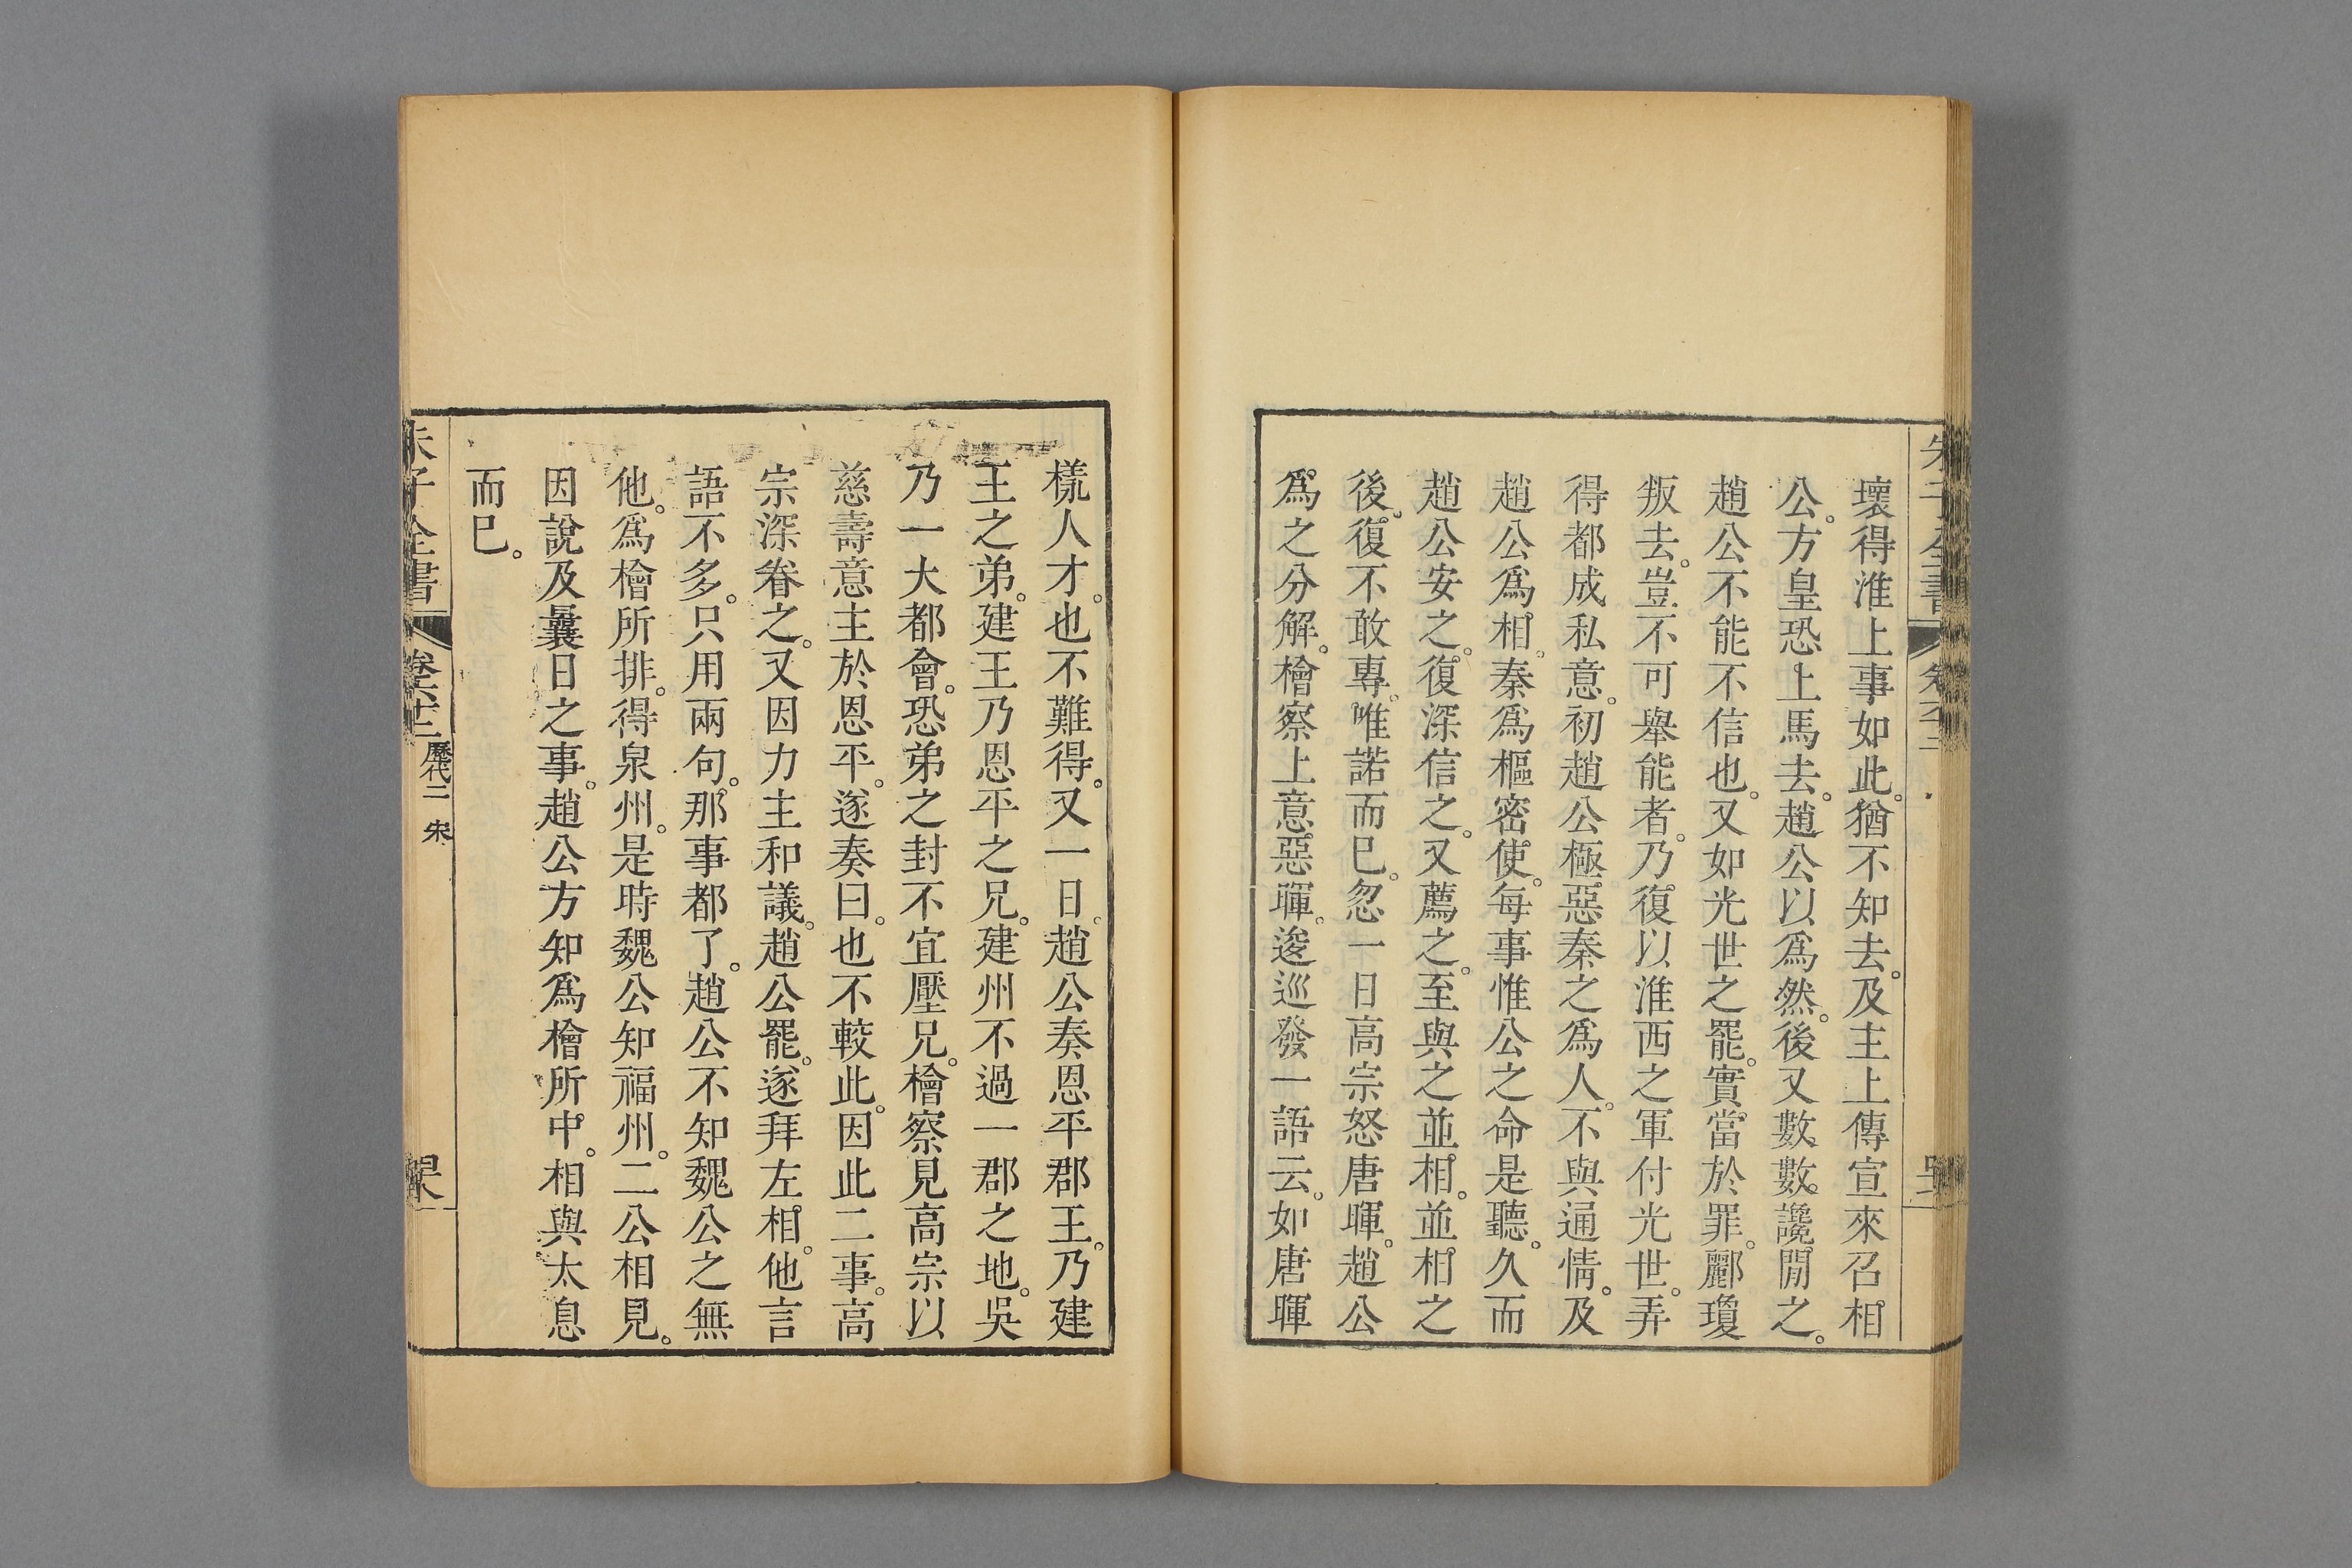 壞得淮上事如此。猶不知去。及主上傳宣來召相
公。方皇恐上馬去。趙公以為然。後又數數讒閒之。
趙公不能不信也。又如光世之罷。實當於罪。酈瓊
叛去。豈不可舉能者。乃復以淮西之軍付光世。弄
得都成私意。初趙公極惡秦之為人。不與通情。及
趙公為相。秦為樞密使。每事惟公之命是聽。久而
趙公安之。復深信之。又薦之。至與之並相。並相之
後。復不敢專。唯諾而已。忽一日高宗怒唐暉。趙公
為之分解。檜察上意惡暉。逡巡發一語云。如唐暉
樣人才。也不難得。又一日。趙公奏恩平郡王。乃建
王之弟。建王乃恩平之兄。建州不過一郡之地。吳
乃一大都會。恐弟之封不宜壓兄。檜察見高宗以
慈壽意主於恩平。遂奏曰。也不較此。因此二事。高
宗深眷之。又因力主和議。趙公罷。遂拜左相。他言
語不多。只用兩句。那事都了。趙公不知魏公之無
他。為檜所排。得泉州。是時魏公知福州。二公相見。
因說及曩日之事。趙公方知為檜所中。相與太息
而已。
朱子全書
歷代二 宋